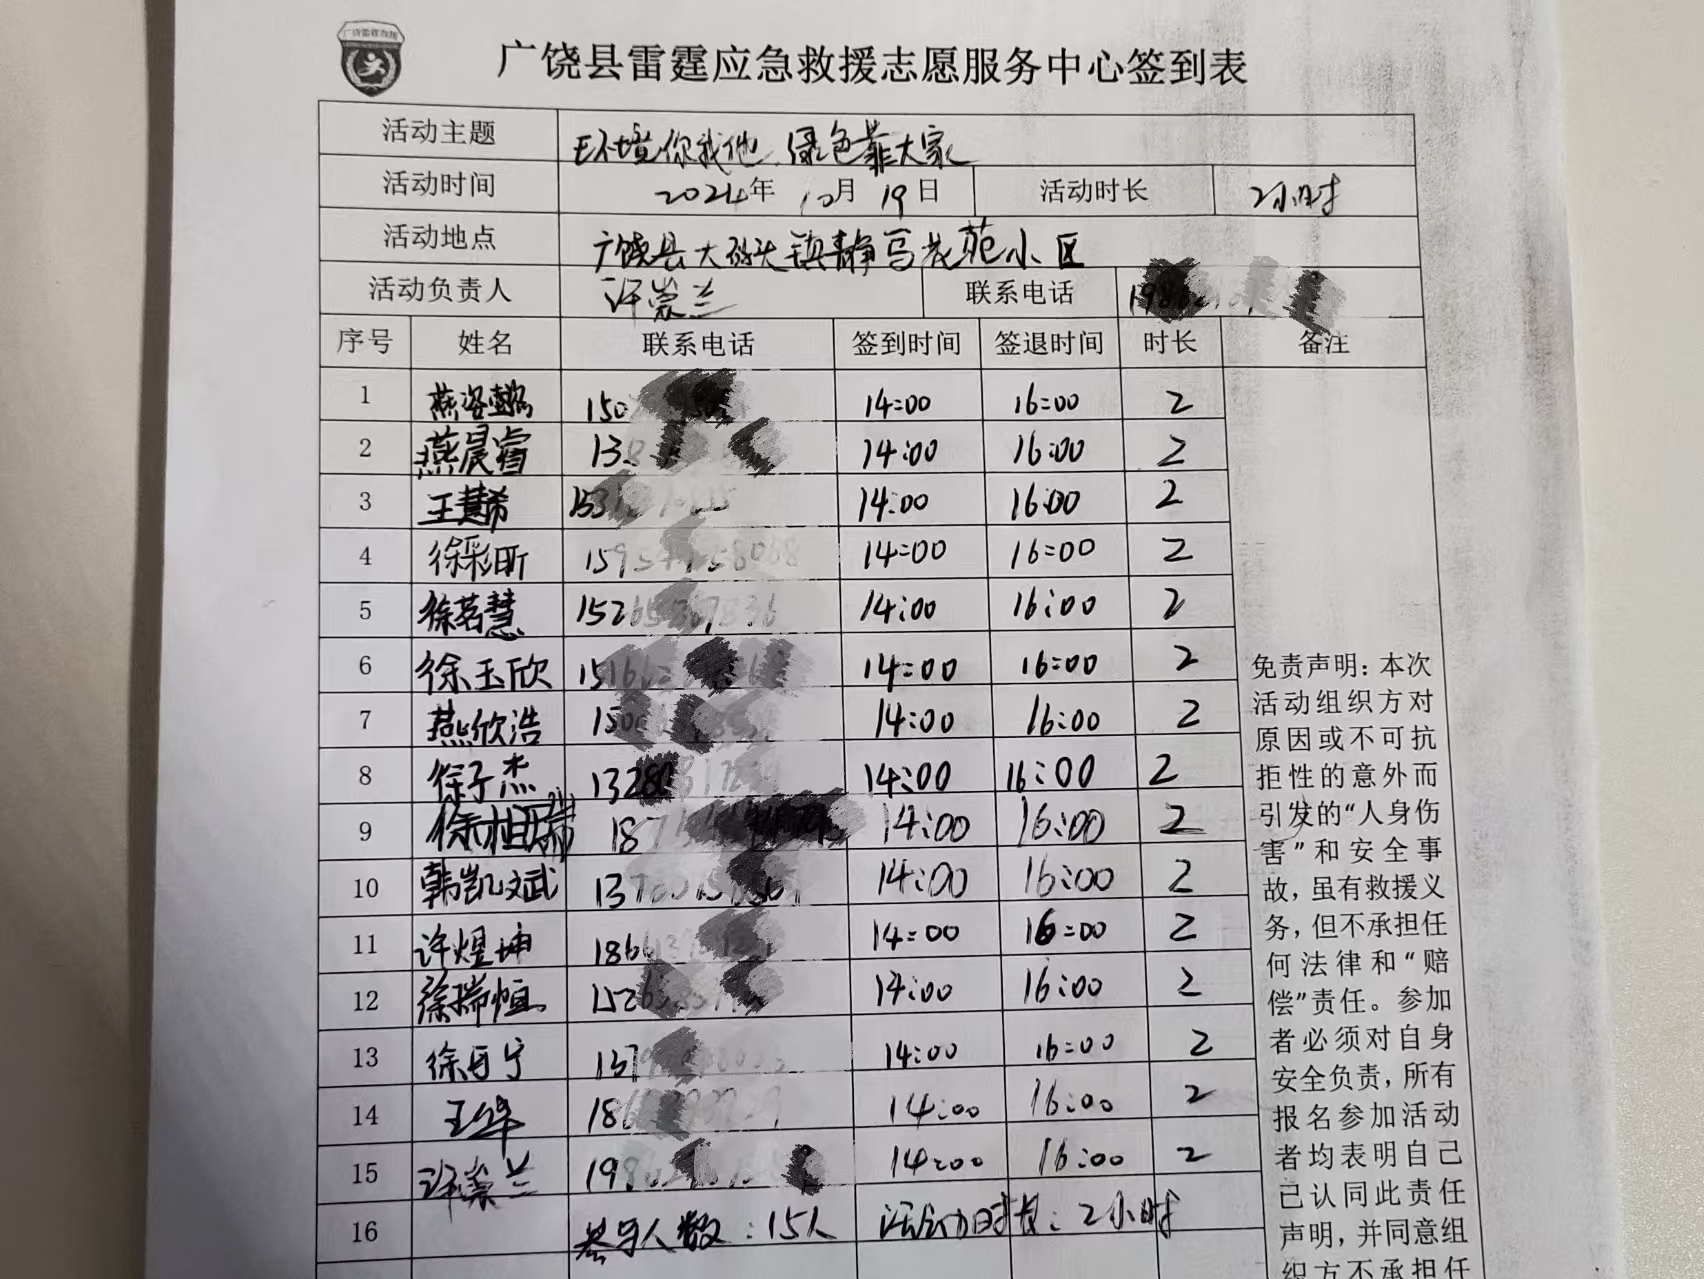 广饶县雷霆应急救援志愿服务中心签到表
活动主题 环境你我他 绿色靠大家
活动时间 2024年 10月 19日 活动时长 2小时
活动地点 广饶县大码头镇静馬花苑小区
活动负责人 许崇兰 联系电话
序号 姓名 联系电话 签到时间 签退时间 时长 备注
1 14:00 16:00 2
2 燕晨睿 14:00 16:00 2
3 王慧希 14:00 16:00 2
4 徐彩昕 14:00 16:00 2
5 徐茗慧 14:00 16:00 2
6 徐玉欣 14:00 16:00 2
7 燕欣浩 14:00 16:00 2
8 徐子杰 14:00 16:00 2
9 徐相瑞 14:00 16:00 2
10 韩凯文武 14:00 16:00 2
11 许煜坤 14:00 16:00 2
12 徐瑞恒 14:00 16:00 2
13 14:00 16:00 2
14 14:00 16:00 2
15 许崇兰 14:00 16:00 2
16 参与人数:15人 活动时长:2小时
免责声明:本次
活动组织方对
原因或不可抗
拒性的意外而
引发的“人身伤
害”和安全事
故,虽有救援义
务,但不承担任
何法律和“赔
偿”责任。参加
者必须对自身
安全负责,所有
报名参加活动
者均表明自己
已认同此责任
声明,并同意组
织方不承担任